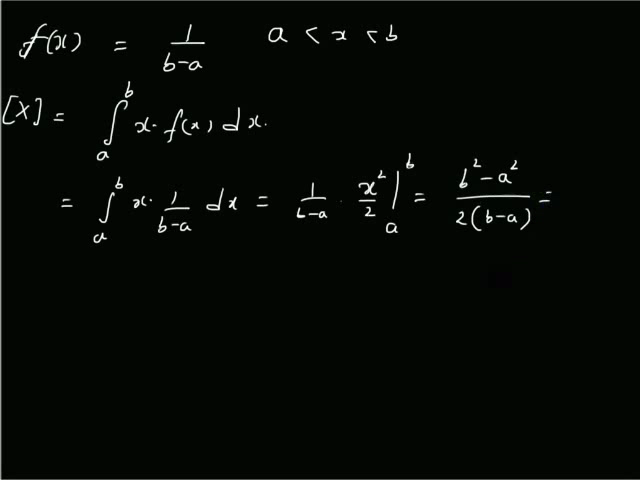 f(x) = 1/(b-a) a < x < b
[X] = ∫_a^b x. f(x) dx.
= ∫_a^b x. 1/(b-a) dx = 1/(b-a) . x²/2 |_a^b = (b²-a²)/(2(b-a)) =